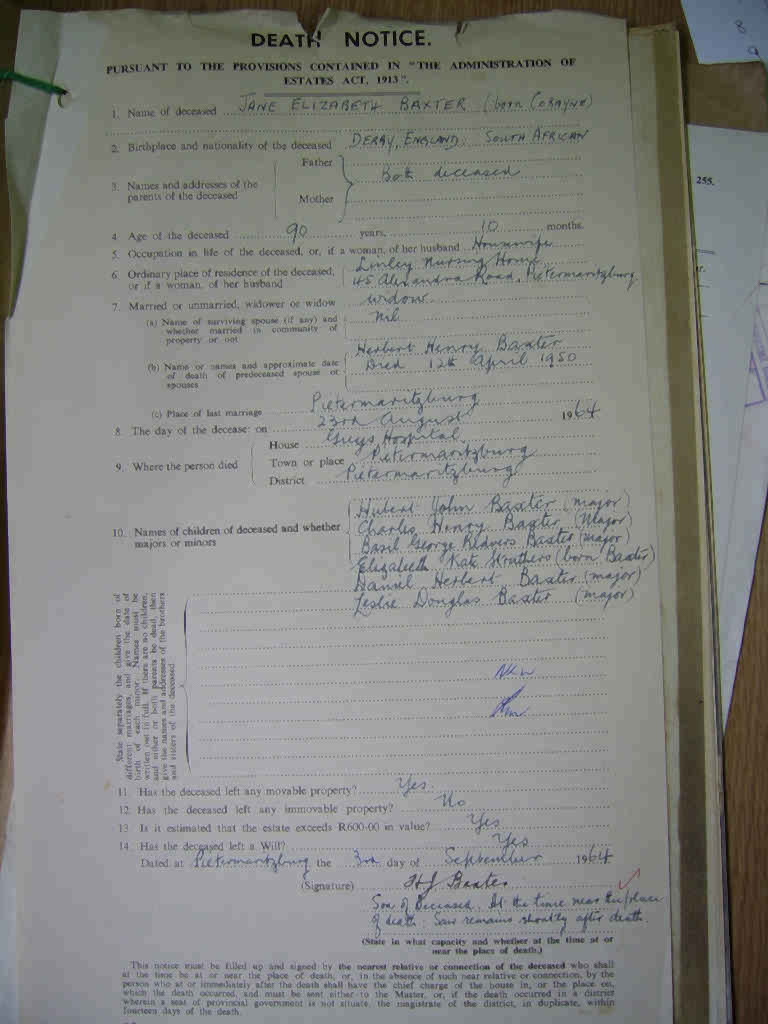 DEATH NOTICE.
PURSUANT TO THE PROVISIONS CONTAINED IN "THE ADMINISTRATION OF
ESTATES ACT, 1913".
1. Name of deceased JANE ELIZABETH BAXTER (born COBAYNE)
2. Birthplace and nationality of the deceased DERBY, ENGLAND. SOUTH AFRICAN
3. Names and addresses of the parents of the deceased
Father
Mother
Both deceased
4 Age of the deceased 90 years, 10 months.
5. Occupation in life of the deceased, or, if a woman, of her husband Housewife
6. Ordinary place of residence of the deceased, or if a woman, of her husband
Linley Nursing Home
45 Alexandra Road, Pietermaritzburg
7. Married or unmarried, widower or widow widow
(a) Name of surviving spouse (if any) and
whether married in community of
property or not
nil
(b) Name or names and approximate date
of death of predeceased spouse or
spouses
Herbert Henry Baxter
Died 12th April 1950
(c) Place of last marriage Pietermaritzburg
8. The day of the decease: on 23rd August 1964
9. Where the person died
House Greys Hospital
Town or place Pietermaritzburg
District Pietermaritzburg
10. Names of children of deceased and whether
majors or minors
Hubert John Baxter (major)
Charles Henry Baxter (Major)
Basil George Redvers Baxter (major)
Elizabeth Kate Struthers (born Baxter)
Daniel Herbert Baxter (major)
Leslie Douglas Baxter (major)
State separately the children born of
different marriages, and give the date of
birth of each minor. Names must be
written out in full. If there are no children,
and either or both parents be dead, then
give the names and addresses of the brothers
and sisters of the deceased
11. Has the deceased left any movable property? Yes.
12. Has the deceased left any immovable property? No
13. Is it estimated that the estate exceeds R600-00 in value? Yes
14. Has the deceased left a Will? Yes
Dated at Pietermaritzburg the 3rd day of September 1964
(Signature) H J Baxter
Son of Deceased. At the time near the place
of death. Saw remains shortly after death.
(State in what capacity and whether at the time at or
near the place of death.)
This notice must be filled up and signed by the nearest relative or connection of the deceased who shall
at the time be at or near the place of death, or, in the absence of such near relative or connection, by the
person who at or immediately after the death shall have the chief charge of the house in, or the place on,
which the death occurred, and must be sent either to the Master, or, if the death occurred in a district
wherein a seat of provincial government is not situate, the magistrate of the district, in duplicate, within
fourteen days of the death.
255.
8